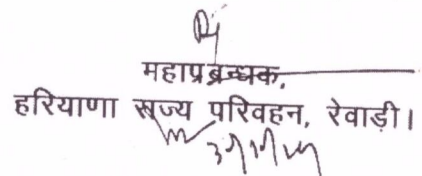 महाप्रबन्धक,
हरियाणा राज्य परिवहन, रेवाड़ी।